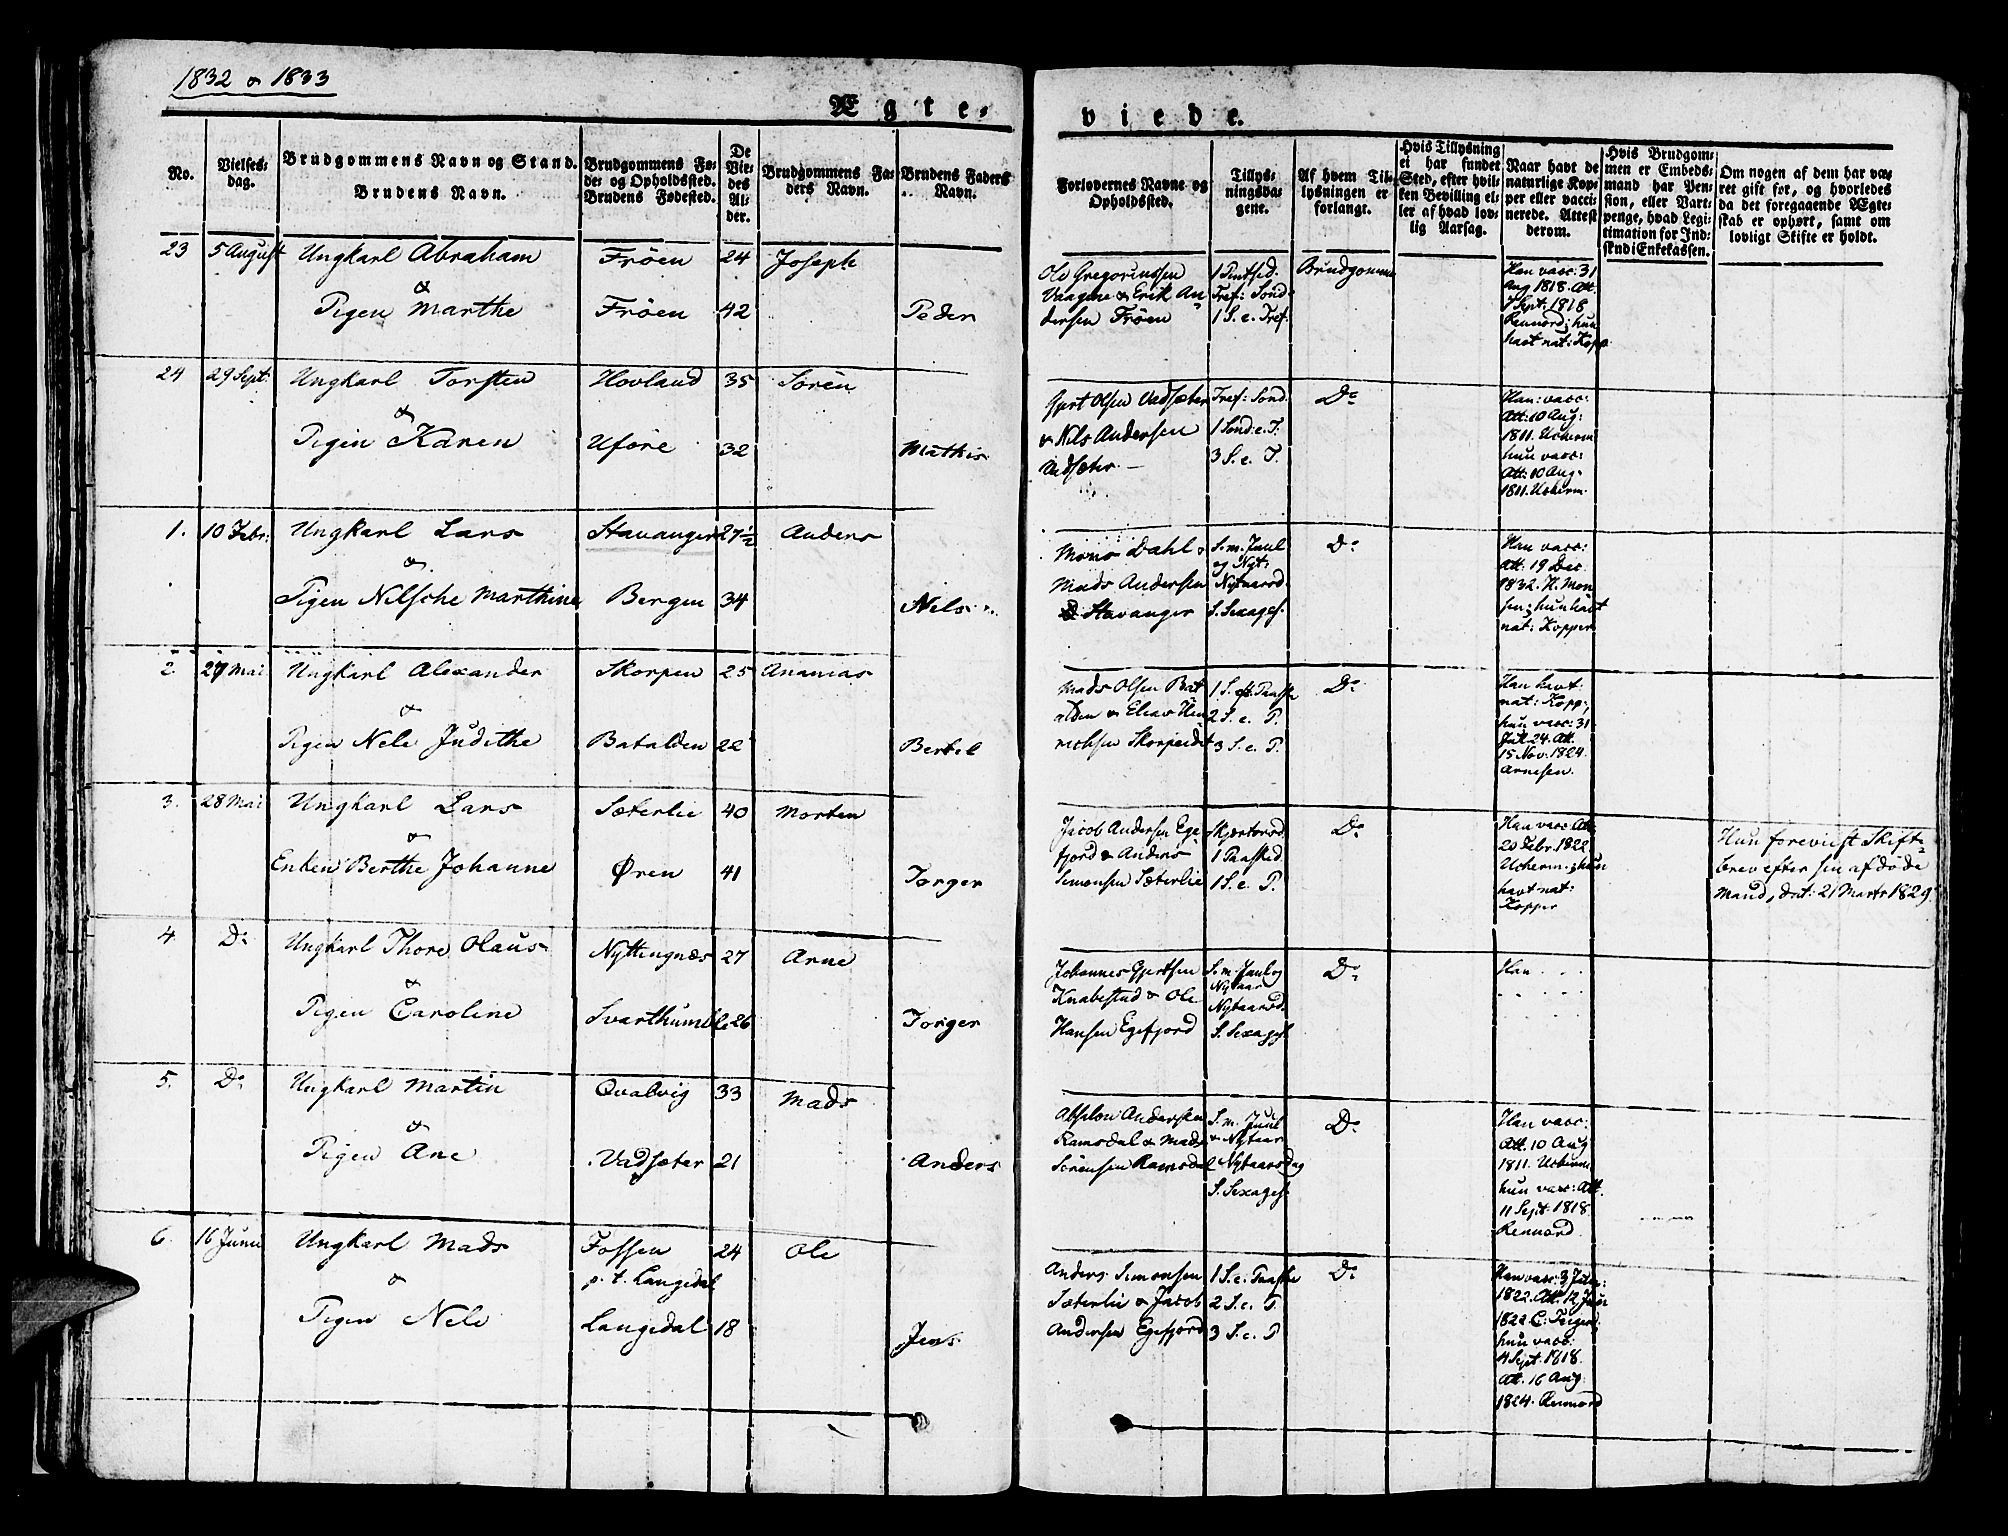 1832 & 1833
Ægte-
viede.
No.
Vielses-
dag.
Brudgommens Navn og Stand.
Brudens Navn.
Brudgommens Fø-
de og Opholdssted.
Brudens Fødested.
De
Vie-
des
Al-
der.
Brudgommens Fa-
ders Navn.
Brudens Faders
Navn.
Forlovernes Navne og
Opholdssted.
Tillys-
ningsda-
gene.
Af hvem Til-
lysningen er
forlangt.
Hvis Tillysning
ei har fundet
Sted, efter hvil-
ken Bevilling el-
ler af hvad lov-
lig Aarsag.
Naar havt de
naturlige Kop-
per eller vacci-
nerede. Attest
derom.
Hvis Brudgom-
men er Embeds-
mand har Pen-
sion, eller Vart-
penge, hvad Legi-
timation for Ind-
skud i Enkekassen.
Om nogen af dem har væ-
ret gift før, og hvorledes
da det foregaaende Ægte-
skab er ophørt, samt om
lovligt Skifte er holdt.
23 5 August Ungkarl Abraham Frøen 24 Joseph
&
Pigen Marthe Frøen 42 Peder
Ole Gregoriussen
Vaagene & Erik An
dersen Frøen
1 Pintsed.
Tref: Sond:
1 S. e. Tref.
Brudgommen
Han vacc: 31
Aug 1818. Att.
7 Sept: 1818
Rennord; hun
havt nat: Kopp
24 29 Sept: Ungkarl Torsten Hovland 35 Søren
&
Pigen Karen Uføre 32 Mathis
Gjert Olsen Vadsæter
& Nils Andersen
Vadsæter. —
Tref: Sond.
1 Sond. e. T.
3 S. e. T.
Do
Han: vacc:
Att: 10 Aug:
1811. Ucherm
hun vacc:
Att: 10 Aug.
1811. Ucherm.
1. 10 Febr: Ungkarl Lars Stavanger 27½ Anders
&
Pigen Nilsche Marthine Bergen 34 Nels
Mons Dahl &
Mads Andersen
Stavanger
S. m. Juul
og Nyt:
Nytaarsd.
S. Sexages.
Do
Han vacc:
Att. 19 Dec
1832. H. Mon
sen; hun havt
nat: Kopper
2. 27 Mai Ungkarl Alexander Skorpen 25 Ananias
&
Pigen Nele Judithe Batalden 22 Bertel
Mads Olsen Bat
alden & Elias
Skorpen
1 S. eft. Paaske
2 S. e. P.
3 S. e. P.
Do
Han havt
nat: Kopp;
hun vacc: 31
Jul. 24. Att.
15 Nov. 1824.
Arnesen.
3. 28 Mai Ungkarl Lars Sæterlie 40 Morten
&
Enken Berthe Johanne Øren 41 Torger
Jacob Andersen Ege
fjord & Anders
Simonsen Sæterlie
Skjærtorsd
1 Paasked
1 S. e. P.
Do
Han vacc Att
20 Febr. 1822
Ucherm.; hun
havt nat:
Kopper
Hun foreviist Skift-
brev efter sin afdøde
Mand, dat: 21 Marts 1829.
4. Do Ungkarl Thore Olaus Nyttingnæs 27 Arne
&
Pigen Caroline Svarthumle 26 Torger
Johannes Gjertsen
Knabestad & Ole
Hansen Egefjord
S. m. Juul og
Nytaar
Nytaarsd.
S. Sexages.
Do
Han . . .
. . . .
5. Do Ungkarl Martin Qvalvig 33 Mads
&
Pigen Ane Vadsæter 21 Anders
Absolon Andersen
Ramsdal & Mads
Sørensen Ramsdal
S. m. Juul
& Nytaar
Nytaarsdag
S. Sexages.
Do
Han vacc:
Att. 10 Aug
1811. Ucherm
hun vacc: Att.
11 Sept. 1818.
Rennord.
6. 16 Junii Ungkarl Mads Fossen 24 Ole
& p. t. Langedal
Pigen Nele Langedal 18 Jens
Anders Simonsen
Sæterlie & Jacob
Andersen Egefjord
1 S. e. Paaske
2 S. e. P.
3 S. e. P
Do
Han vacc: 3
1822. Att. 12
1822. C:
hun vacc:
4 Sept. 1818.
Att. 16 Aug
1824. Rennord